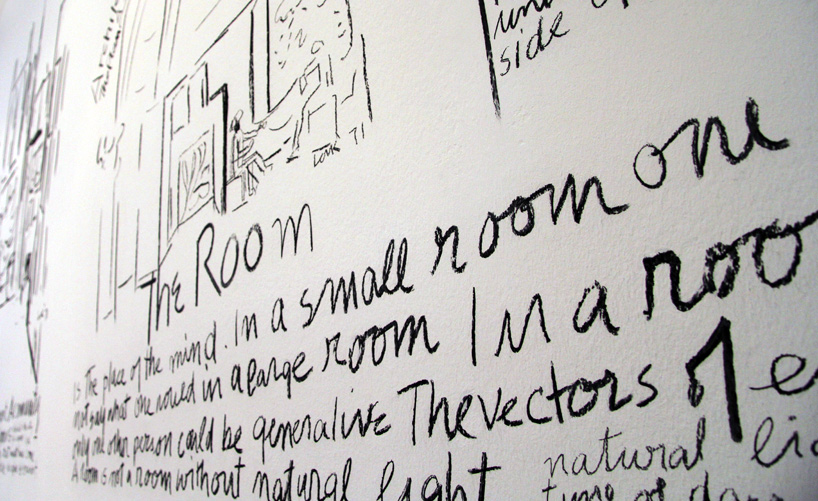 side of
Lou K 71
The Room
is the place of the mind. In a small room one
not say what one would in a large room In a roo
only one other person could be generative The vectors of e
A room is not a room without natural light natural li
time of day